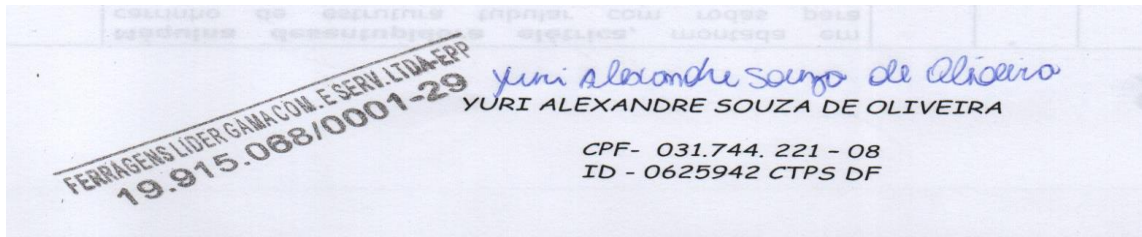 FERRAGENS LÍDER GAMA COM. E SERV. LTDA-EPP
19.915.068/0001-29
Yuri Alexandre Souza de Oliveira
YURI ALEXANDRE SOUZA DE OLIVEIRA
CPF- 031.744. 221 - 08
ID - 0625942 CTPS DF